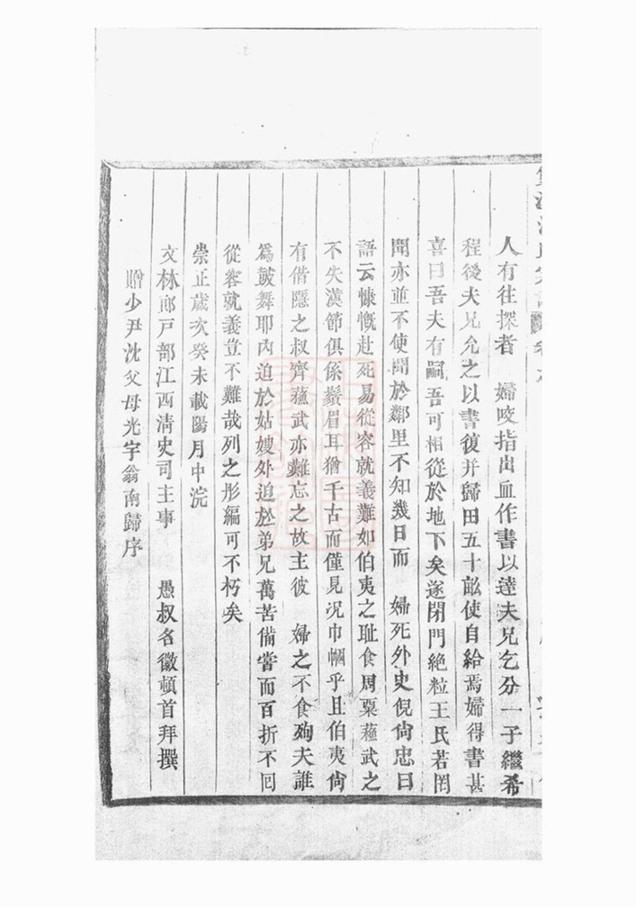 人有往探者　婦咬指出血作書以達夫兄乞分一子繼希
程後夫兄允之以書復并歸田五十畝使自給焉婦得書甚
喜曰吾夫有嗣吾可相從於地下矣遂閉門絶粒王氏若罔
聞亦並不使聞於鄰里不知幾日而　婦死外史倪尙忠曰
語云慷慨赴死易從容就義難如伯夷之耻食周粟蘓武之
不失漢節俱係鬚眉耳猶千古而僅見况巾幗乎且伯夷尙
有偕隱之叔齊蘓武亦難忘之故主彼　婦之不食殉夫誰
爲皷舞耶内迫於姑嫂外迫於弟兄萬苦備嘗而百折不囘
從容就義豈不難哉列之彤編可不朽矣
崇正歲次癸未載陽月中浣
文林郎戸部江西清史司主事　愚叔名徽頓首拜撰
贈少尹沈父母光宇翁南歸序